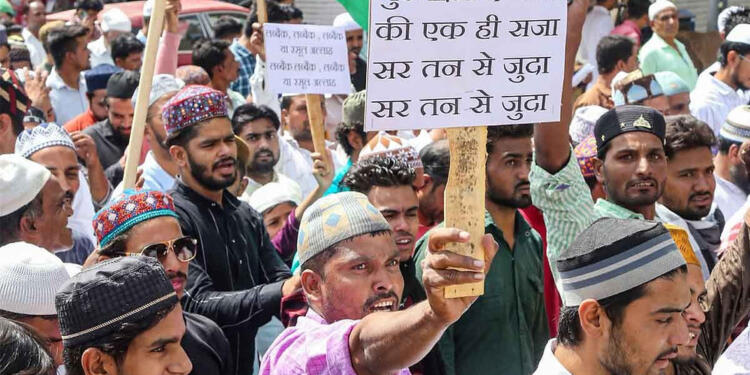 लब्बैक, लब्बैक, लब्बैक
या रसूल अल्लाह
लब्बैक, लब्बैक, लब्बैक
या रसूल अल्लाह
की एक ही सजा
सर तन से जुदा
सर तन से जुदा